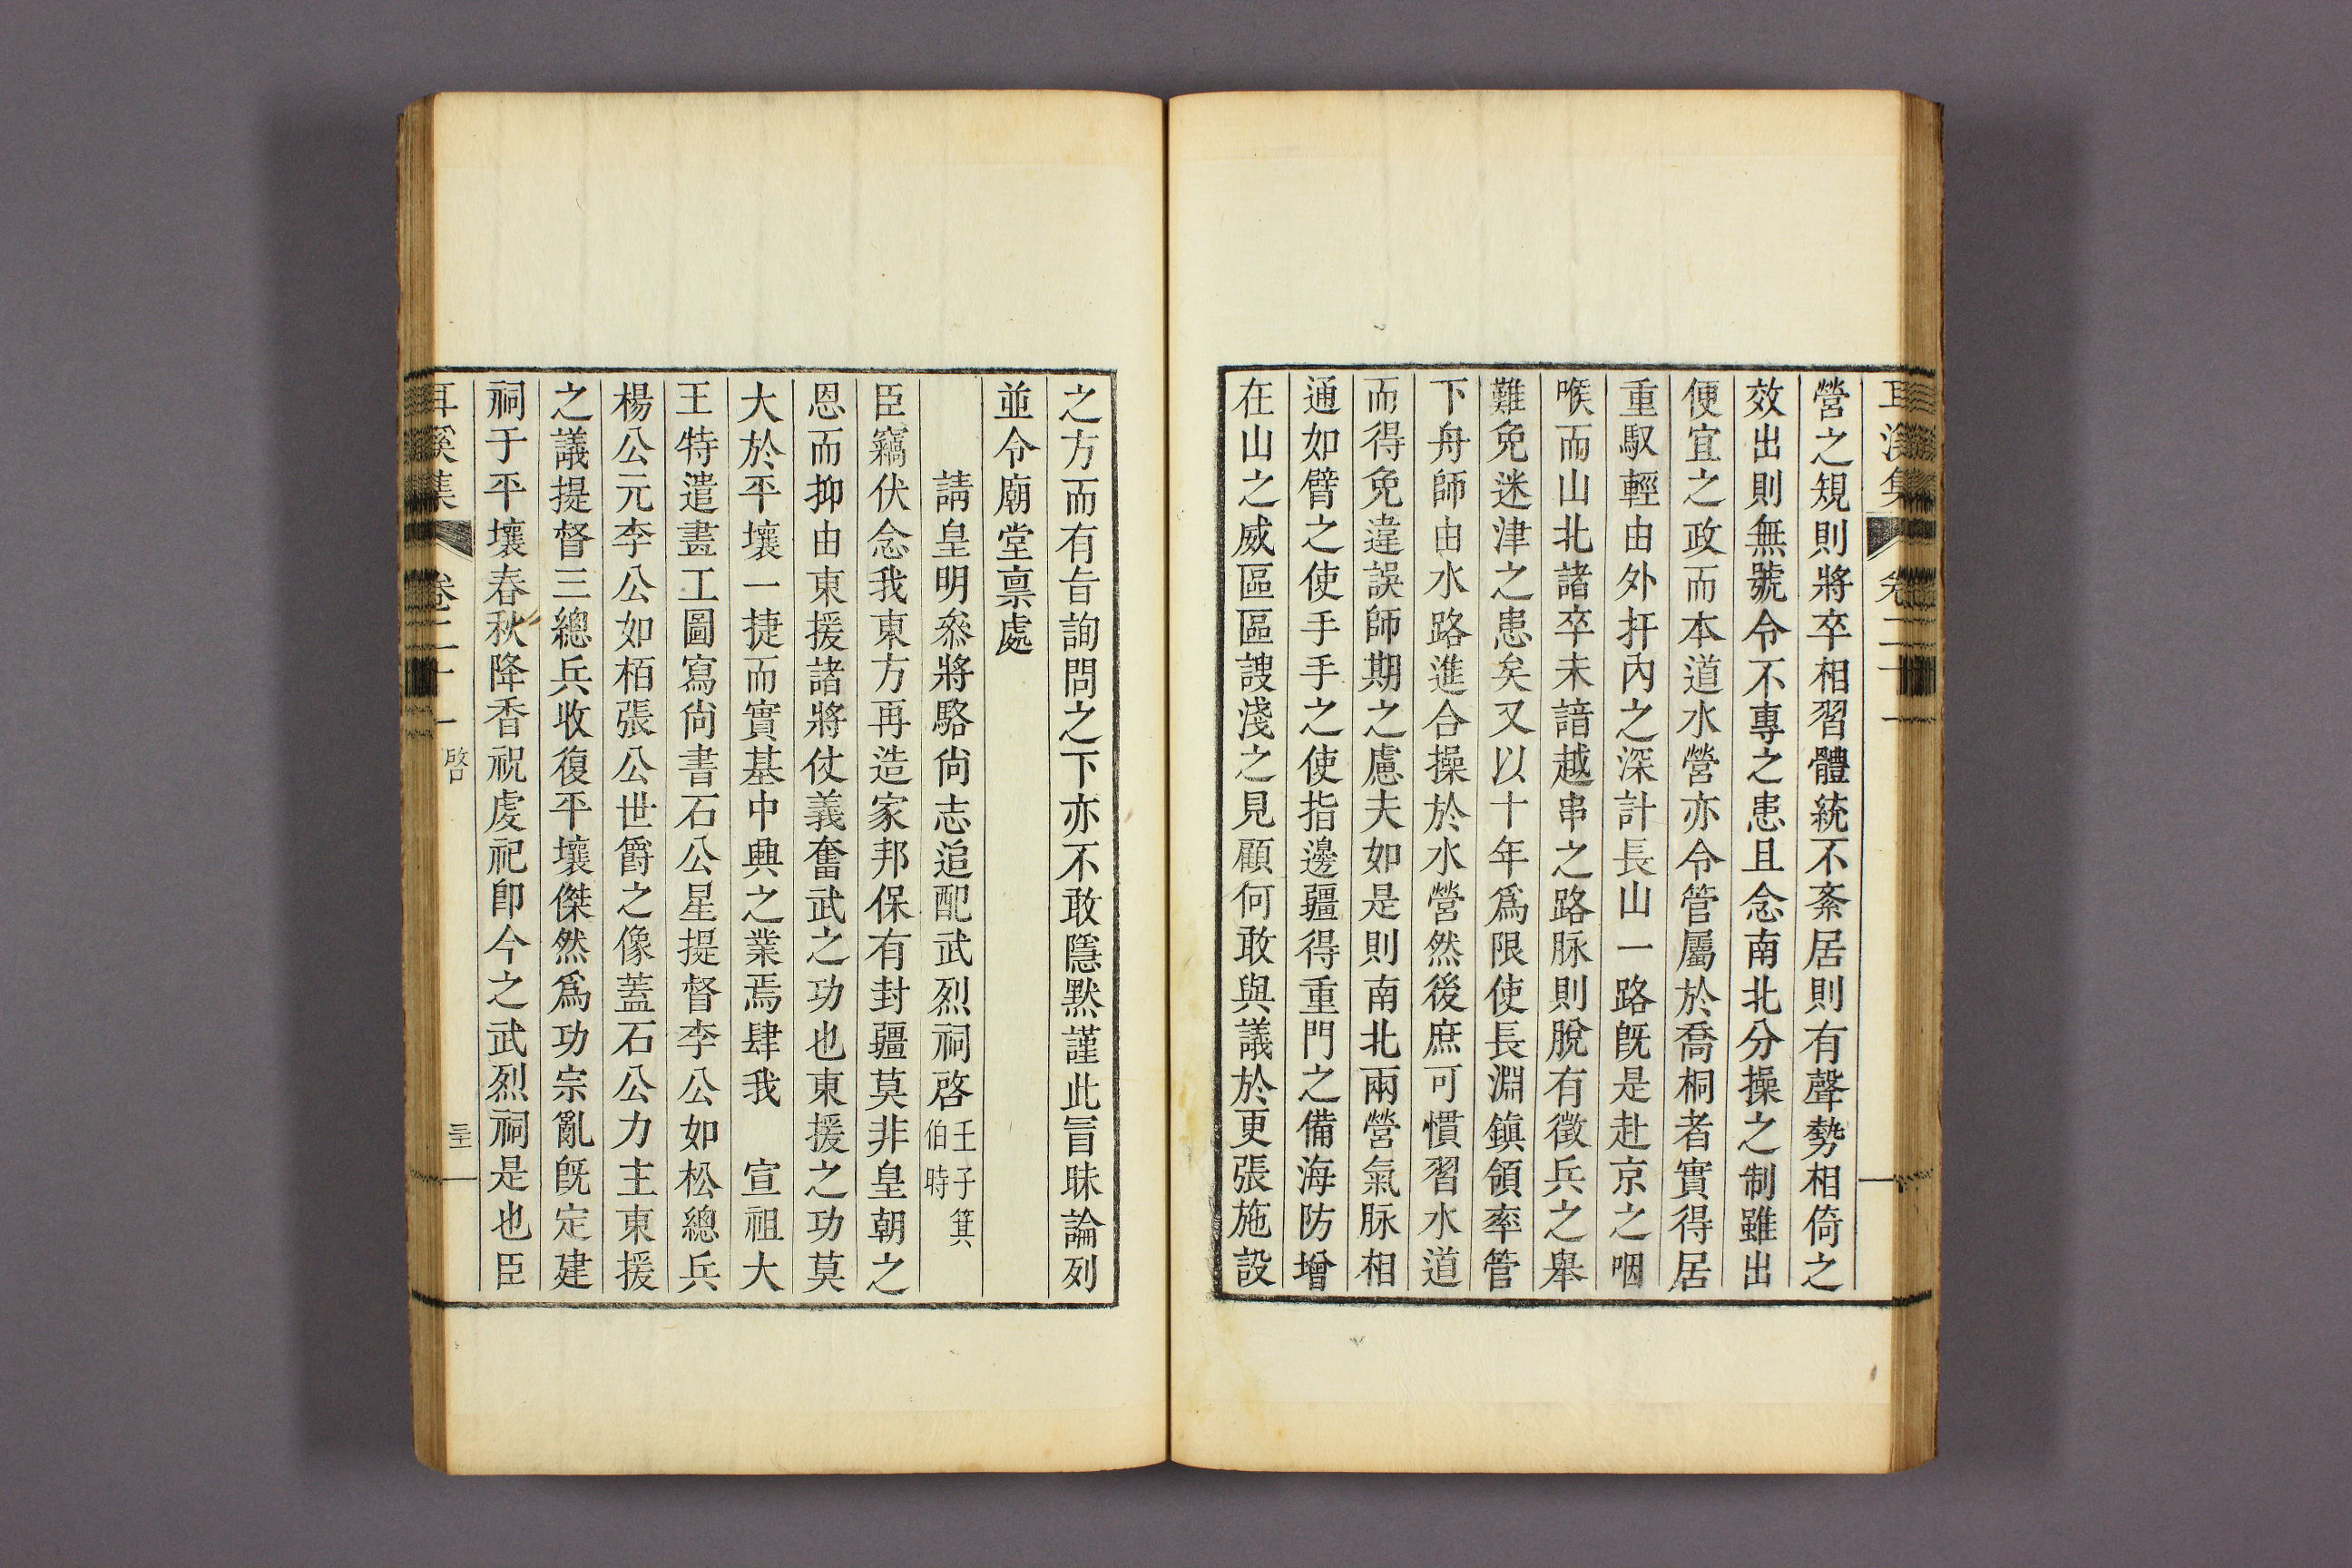 耳溪集 卷二十一
營之規則將卒相習體統不紊居則有聲勢相倚之
效出則無號令不專之患且念南北分操之制雖出
便宜之政而本道水營亦令管屬於喬桐者實得居
重馭輕由外扞內之深計長山一路旣是赴京之咽
喉而山北諸卒未諳越串之路脉則脫有徵兵之擧
難免迷津之患矣又以十年爲限使長淵鎭領率管
下舟師由水路進合操於水營然後庶可慣習水道
而得免違誤師期之慮夫如是則南北兩營氣脉相
通如臂之使手手之使指邊疆得重門之備海防增
在山之威區區謏淺之見顧何敢與議於更張施設
之方而有旨詢問之下亦不敢隱默謹此冒昧論列
並令廟堂禀處
請皇明叅將駱尙志追配武烈祠啓 壬子箕
伯時
臣竊伏念我東方再造家邦保有封疆莫非皇朝之
恩而抑由東援諸將仗義奮武之功也東援之功莫
大於平壤一捷而實基中興之業焉肆我 宣祖大
王特遣畫工圖寫尙書石公星提督李公如松總兵
楊公元李公如栢張公世爵之像蓋石公力主東援
之議提督三總兵收復平壤傑然爲功宗亂旣定建
祠于平壤春秋降香祝虔祀卽今之武烈祠是也臣
耳溪集 卷二十一 啓